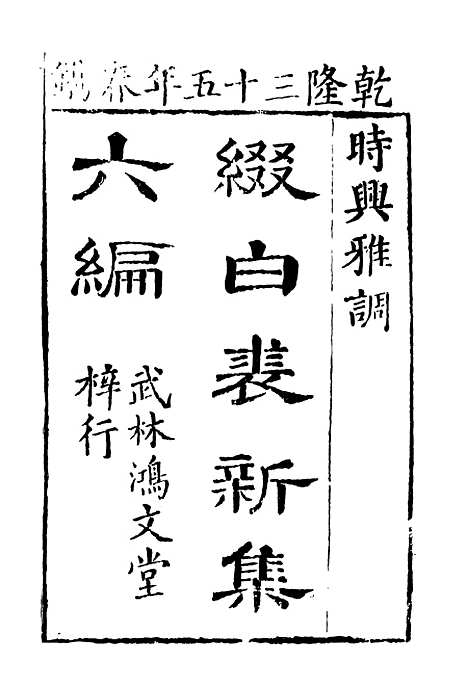 乾隆三十五年春鐫
時興雅調
綴白裘新集
六編
武林鴻文堂
梓行